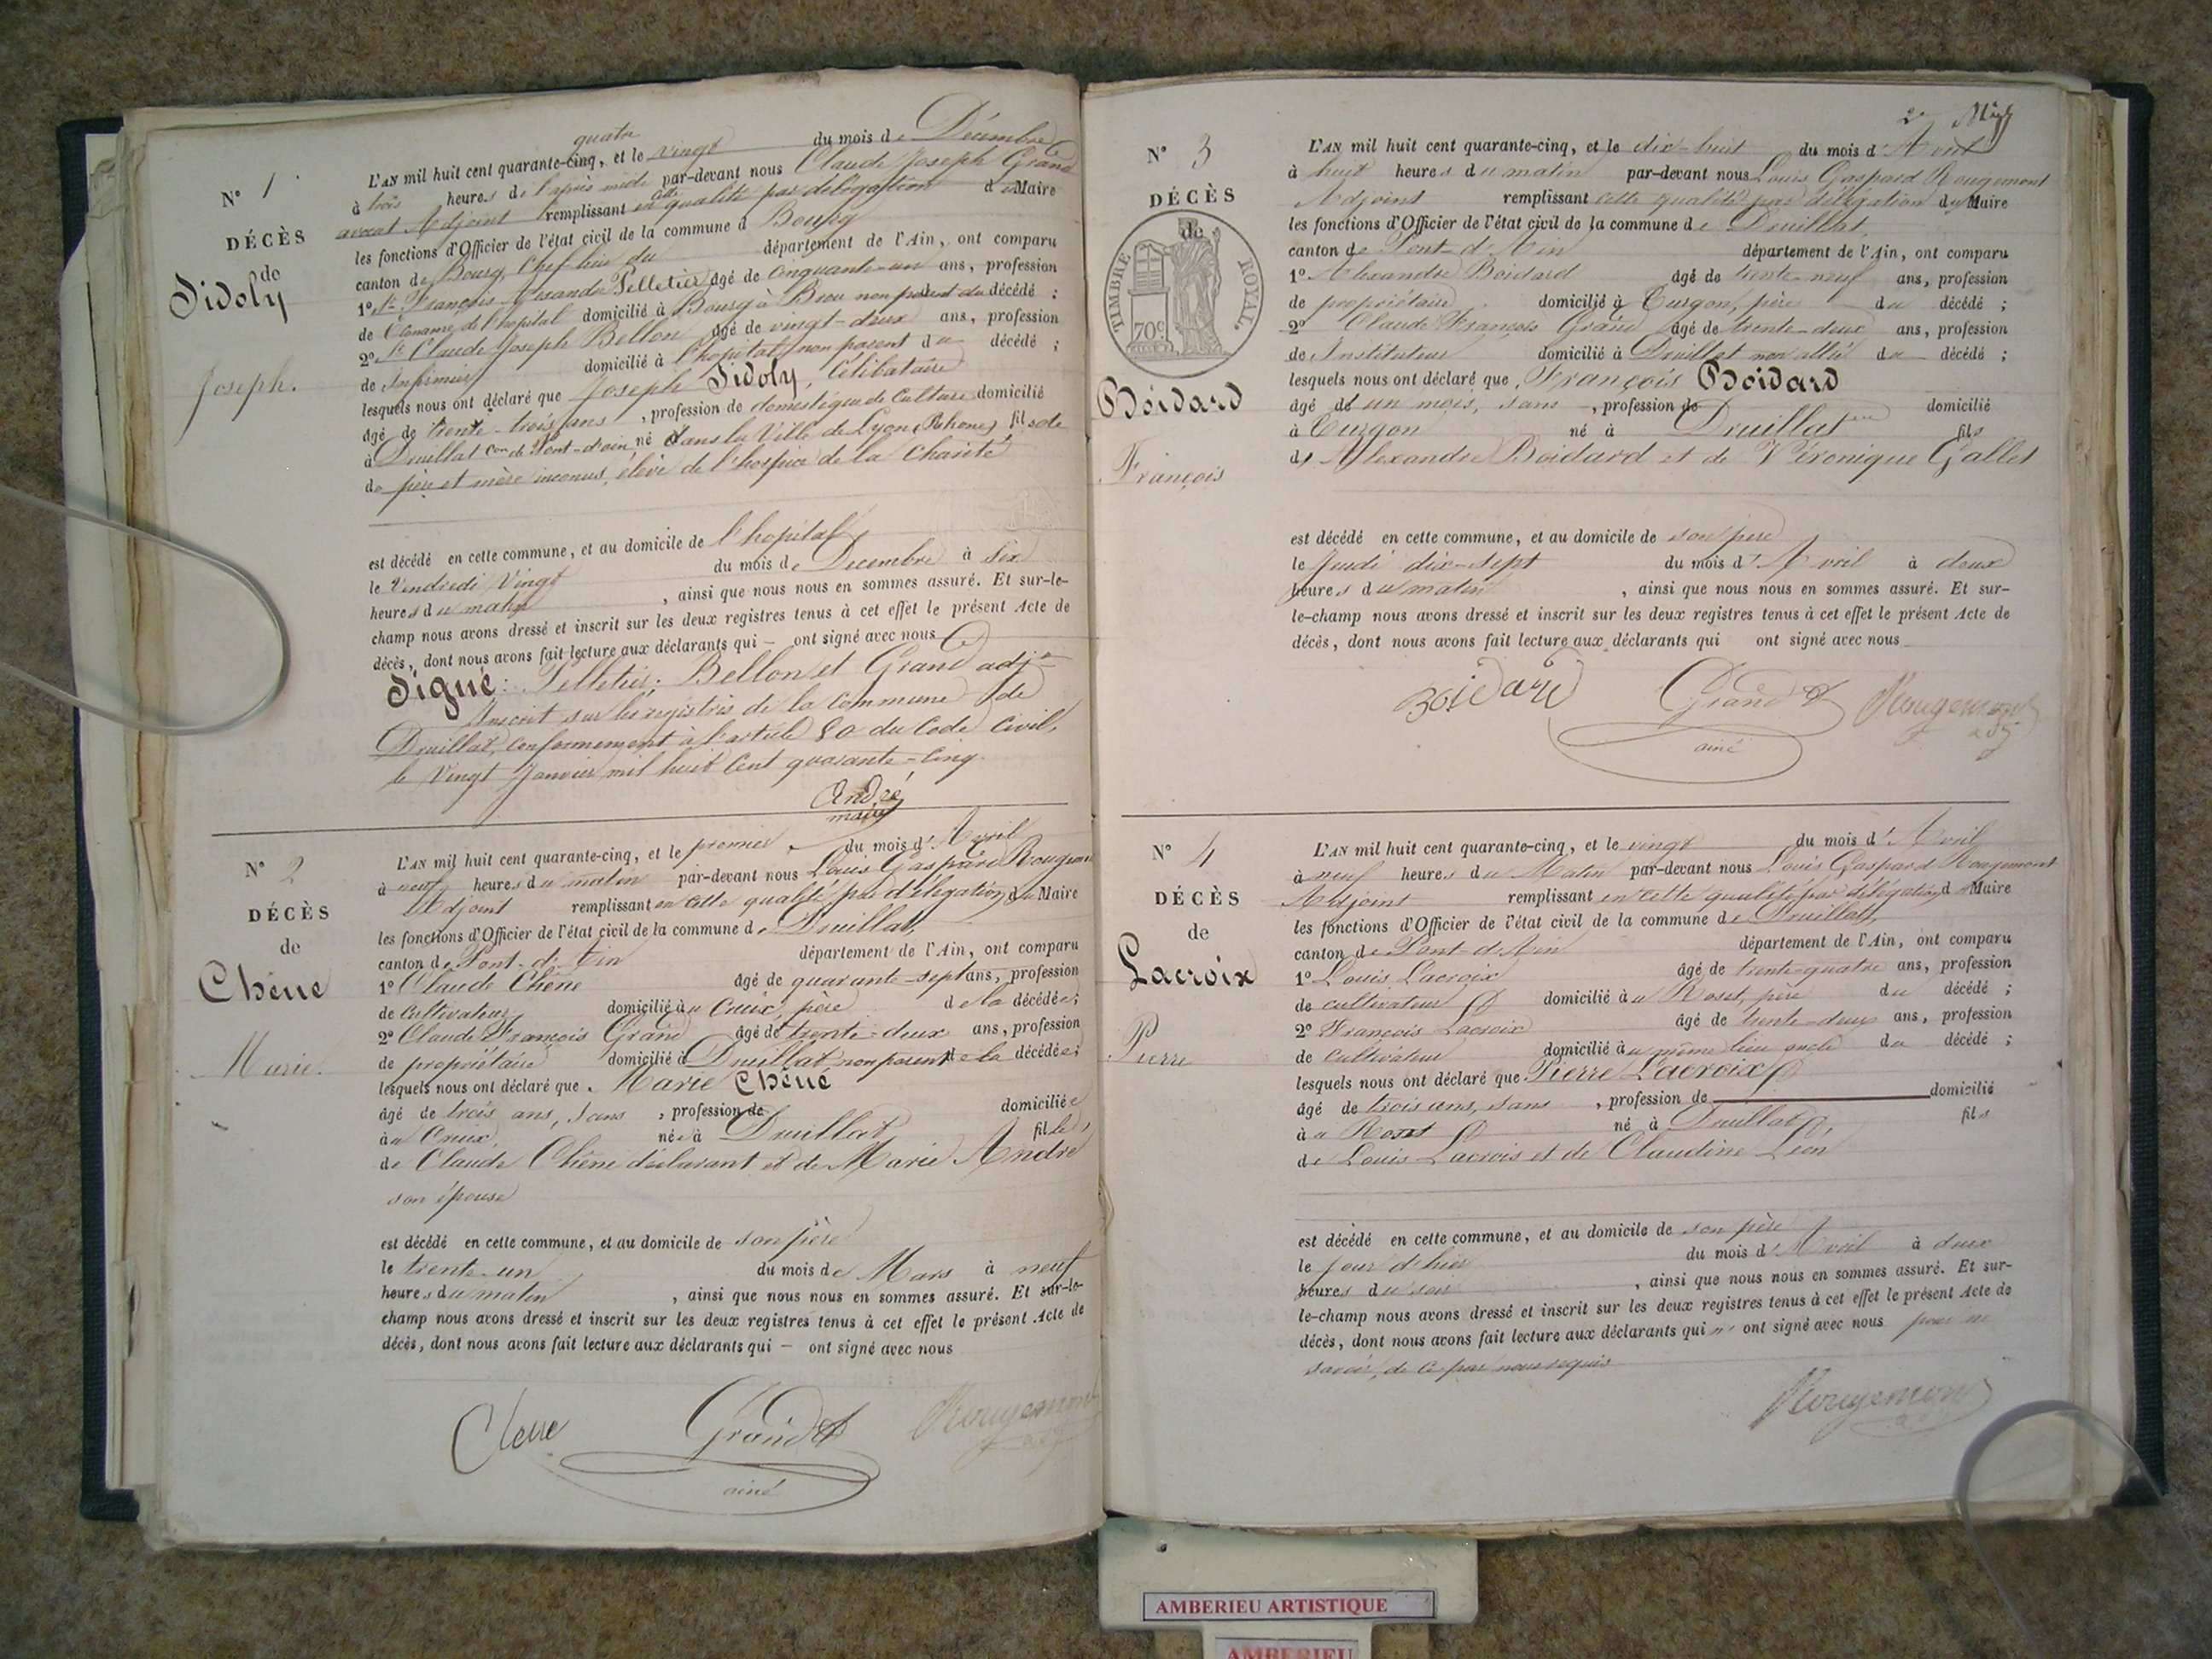 N° 1
DÉCÈS
de
Sidoly
Joseph.
quatre
L'AN mil huit cent quarante-cinq, et le vingt du mois de Décembre
à trois heures de l'après midi par-devant nous Claude Joseph Grand
avocat Adjoint remplissant en cette qualité par délégation de Maire
les fonctions d'Officier de l'état civil de la commune d Bourg
canton de Bourg Chef-lieu du département de l'Ain, ont comparu
1° Sr François Pelletier âgé de Cinquante-un ans, profession
de Econome de l'hopital domicilié à Bourg à Brou non parent du décédé ;
2° Sr Claude Joseph Bellon âgé de vingt-deux ans, profession
de Infirmier domicilié à l'hopital non parent du décédé ;
lesquels nous ont déclaré que Joseph Sidoly, Célibataire
âgé de trente-trois ans, profession de domestique de Culture domicilié
à Druillat con de Pont-d'ain né dans la Ville de Lyon (Rhone) fils de
de père et mère inconus, élève de l'hospice de la Charité
est décédé en cette commune, et au domicile de l'hopital
le Vendredi Vingt du mois de Decembre à six
heures du matin, ainsi que nous nous en sommes assuré. Et sur-le-
champ nous avons dressé et inscrit sur les deux registres tenus à cet effet le présent Acte de
décès, dont nous avons fait lecture aux déclarants qui – ont signé avec nous
Signé : Pelletier, Bellon et Grand adjt
Inscrit sur les registres de la Commune de
Druillat, conformement à l'article 80 du Code Civil,
le Vingt Janvier mil huit Cent quarante-Cinq.
André
maire
N° 2
DÉCÈS
de
Chêne
Marie.
L'AN mil huit cent quarante-cinq, et le premier du mois d'Avril
à neuf heures du matin par-devant nous Louis Gaspard Rougemont
Adjoint remplissant en cette qualité par délégation du Maire
les fonctions d'Officier de l'état civil de la commune de Druillat,
canton de Pont-d'Ain département de l'Ain, ont comparu
1° Claude Chêne âgé de quarante-sept ans, profession
de Cultivateur domicilié au Creux, père de la décédée ;
2° Claude François Grand âgé de trente-deux ans, profession
de propriétaire domicilié à Druillat, non parent de la décédée ;
lesquels nous ont déclaré que Marie Chêne
âgé de trois ans, sans, profession de domiciliée
à au Creux, née à Druillat fille
de Claude Chêne déclarant et de Marie André
son épouse
est décédé en cette commune, et au domicile de son père
le trente-un du mois de Mars à neuf
heures du matin, ainsi que nous nous en sommes assuré. Et sur-le-
champ nous avons dressé et inscrit sur les deux registres tenus à cet effet le présent Acte de
décès, dont nous avons fait lecture aux déclarants qui – ont signé avec nous
Chene Grand Rougemont
ainé adj
N° 3
DÉCÈS
de
TIMBRE ROYAL.
70c
Boidard
François
L'AN mil huit cent quarante-cinq, et le dix-huit du mois d'Avril
à huit heures du matin par-devant nous Louis Gaspard Rougemont
Adjoint remplissant cette qualité par délégation du Maire
les fonctions d'Officier de l'état civil de la commune de Druillat,
canton de Pont-d'Ain département de l'Ain, ont comparu
1° Alexandre Boidard âgé de trente-neuf ans, profession
de propriétaire domicilié à Turgon, père du décédé ;
2° Claude François Grand âgé de trente-deux ans, profession
de Instituteur domicilié à Druillat non allié du décédé ;
lesquels nous ont déclaré que François Boidard
âgé de un mois, sans, profession de domicilié
à Turgon né à Druillat fils
de Alexandre Boidard et de Véronique Gallet
est décédé en cette commune, et au domicile de son père
le Jeudi dix-sept du mois d'Avril à deux
heures du matin, ainsi que nous nous en sommes assuré. Et sur-
le-champ nous avons dressé et inscrit sur les deux registres tenus à cet effet le présent Acte de
décès, dont nous avons fait lecture aux déclarants qui ont signé avec nous
Boidard Grand Rougemont
ainé adj
N° 4
DÉCÈS
de
Lacroix
Pierre
L'AN mil huit cent quarante-cinq, et le vingt du mois d'Avril
à neuf heures du Matin par-devant nous Louis Gaspard Rougemont
Adjoint remplissant en cette qualité par délégation d Maire
les fonctions d'Officier de l'état civil de la commune de Druillat,
canton de Pont-d'Ain département de l'Ain, ont comparu
1° Louis Lacroix âgé de trente-quatre ans, profession
de cultivateur domicilié au Roset, père du décédé ;
2° François Lacroix âgé de trente-deux ans, profession
de Cultivateur domicilié au même lieu oncle du décédé ;
lesquels nous ont déclaré que Pierre Lacroix
âgé de trois ans, sans, profession de domicilié
à au Roset né à Druillat, fils
de Louis Lacroix et de Claudine Léon
est décédé en cette commune, et au domicile de son père
le jour d'hier du mois d'Avril à deux
heures du soir, ainsi que nous nous en sommes assuré. Et sur-
le-champ nous avons dressé et inscrit sur les deux registres tenus à cet effet le présent Acte de
décès, dont nous avons fait lecture aux déclarants qui n' ont signé avec nous pour ne
savoir, de ce par nous requis
Rougemont
AMBERIEU ARTISTIQUE
AMBERIEU